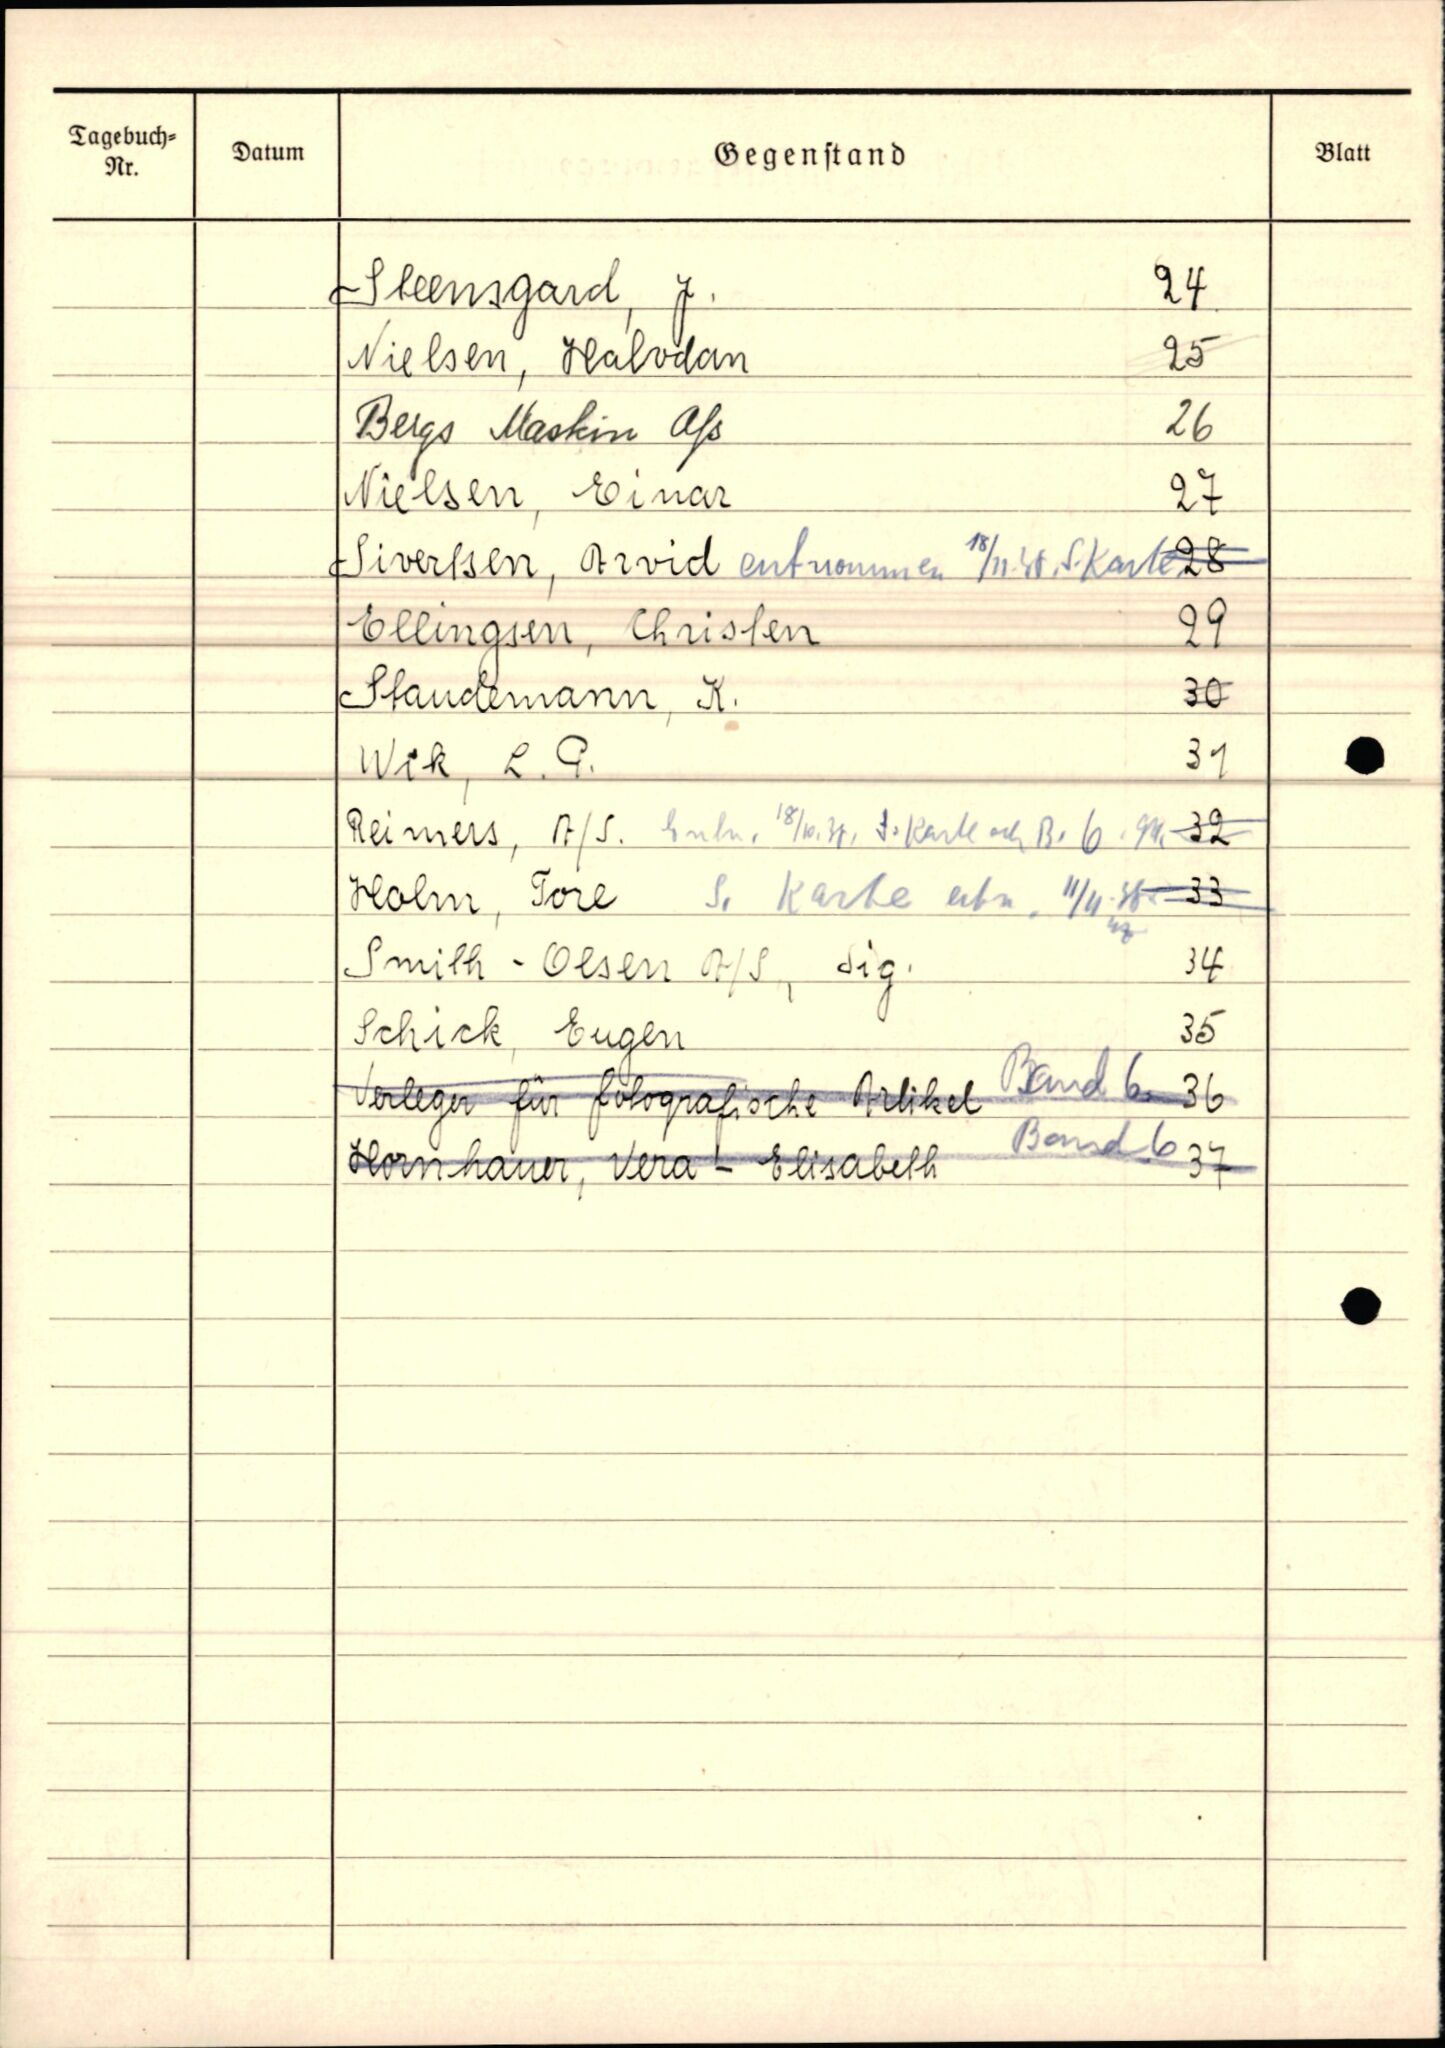 Tagebuch-Nr. Datum Gegenstand Blatt
Steensgard, J. 24
Nielsen, Halvdan 25
Bergs Maskin A/s 26
Nielsen, Einar 27
Siverssen, Arvid entnommen 18/11. S. Karte 28
Ellingsen, Christen 29
Staudemann, K. 30
Wik, L. P. 31
Reimers, A/S. Entn. 18/10. S. Karte B. 6 32
Holm, Tore S. Karte entn. 11/11. 33
Smith - Olsen A/S, Sig. 34
Schick, Eugen 35
Verleger für fotografische Artikel Band 6. 36
Hornhauer, Vera - Elisabeth Band 6 37